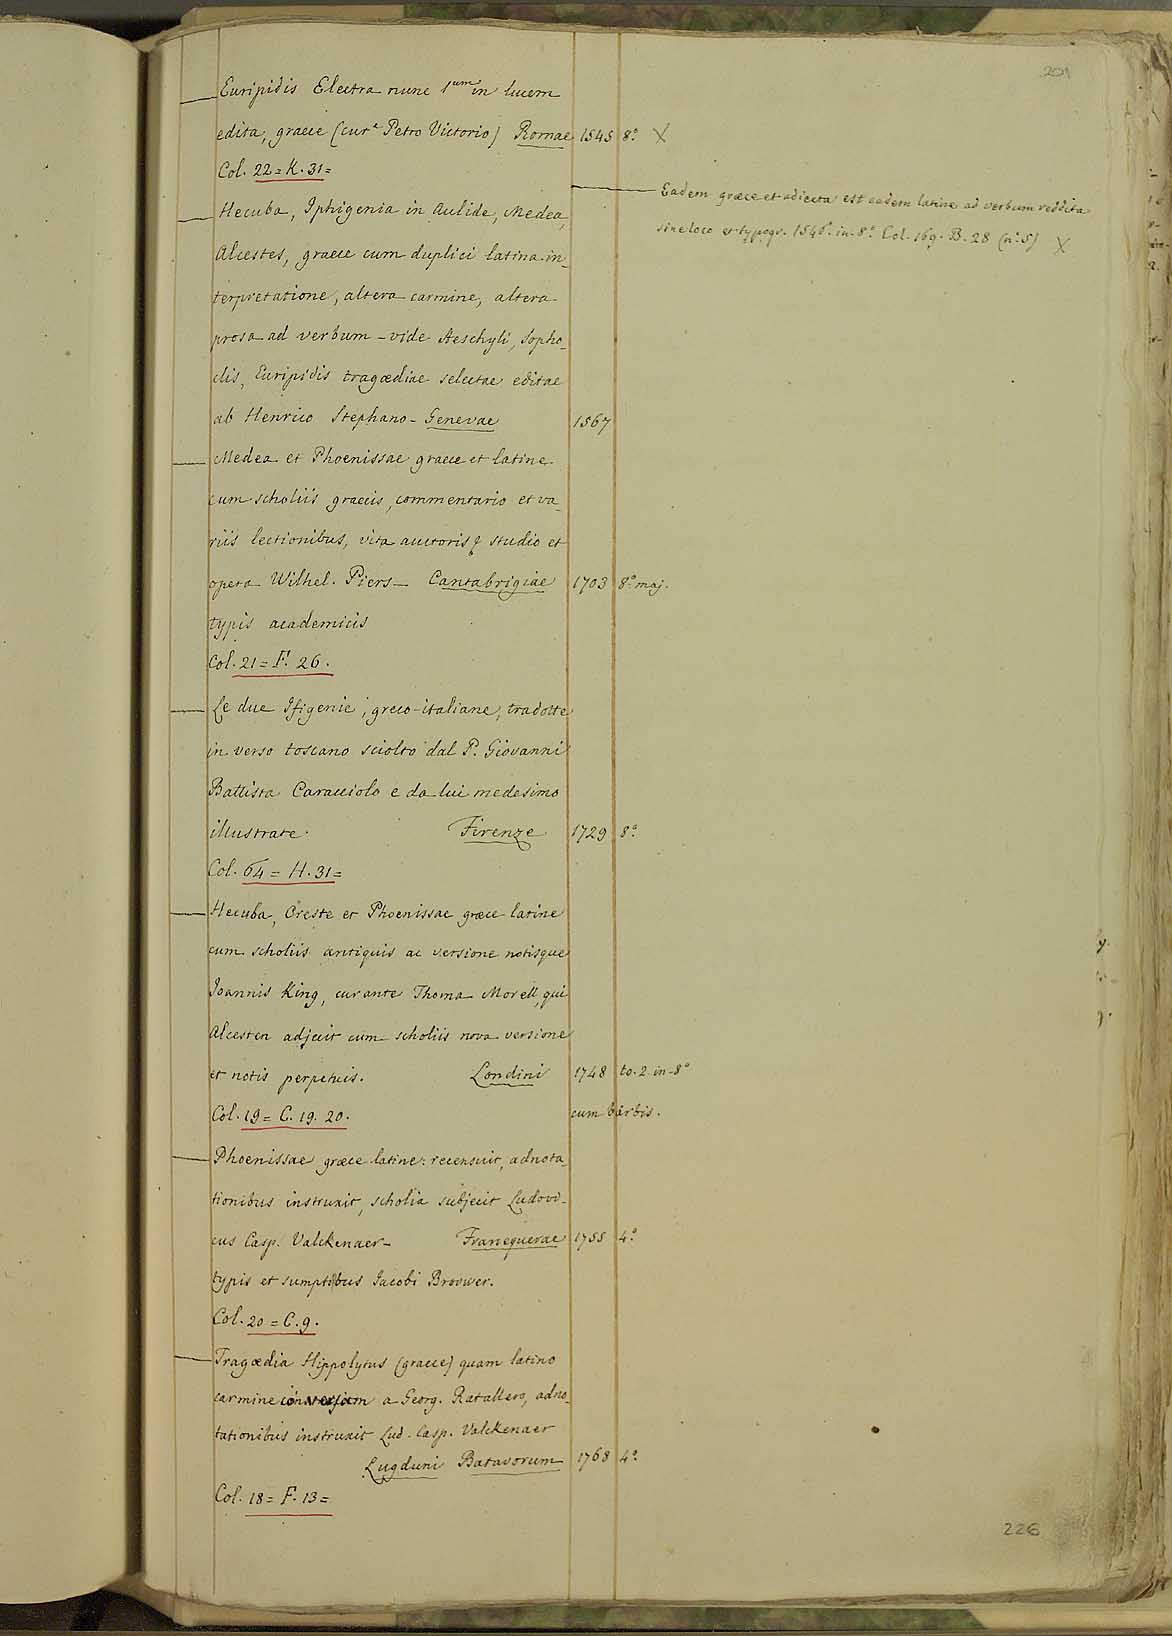 201
Euripidis Electra nunc 1um in lucem
edita, graece (cura Petro Victorio) Romae 1545 8.o X
Col. 22 = K. 31 =
Eadem græce et adiecta est eadem latine ad verbum reddita
sine loco et typogr. 1546. in-8.o Col. 169. B. 28 (n.o 5) X
Hecuba, Iphigenia in Aulide, Medea,
Alcestes, graece cum duplici latina in-
terpretatione, altera carmine, altera
prosa ad verbum - vide Aeschyli, Sopho-
clis, Euripidis tragœdiae selectae editae
ab Henrico Stephano - Genevae 1567
Medea et Phoenissae graece et latine
cum scholiis graecis, commentario et va-
riis lectionibus, vita auctoris & studio et
opera Wilhel. Piers - Cantabrigiae 1703 8.o maj.
typis academicis
Col. 21 = F. 26.
Le due Ifigenie, greco-italiane, tradotte
in verso toscano sciolto dal P. Giovanni
Battista Caracciolo e da lui medesimo
illustrate. Firenze 1729 8.o
Col. 64 = H. 31 =
Hecuba, Oreste et Phoenissae græce latine
cum scholiis antiquis ac versione notisque
Ioannis King, curante Thoma Morell, qui
Alcesten adjecit cum scholiis nova versione
et notis perpetuis. Londini 1748 to. 2 in-8.o
Col. 19 = C. 19. 20. cum barbis.
Phoenissae græce latine: recensuit, adnota-
tionibus instruxit, scholia subjecit Ludovi-
cus Casp. Valckenaer - Franequerae 1755 4.o
typis et sumptibus Iacobi Brouwer.
Col. 20 = C. 9.
Tragœdia Hippolytus (graece) quam latino
carmine conversam a Georg. Ratallero, adno-
tationibus instruxit Lud. Casp. Valckenaer
Lugduni Batavorum 1768 4.o
Col. 18 = F. 13 =
226